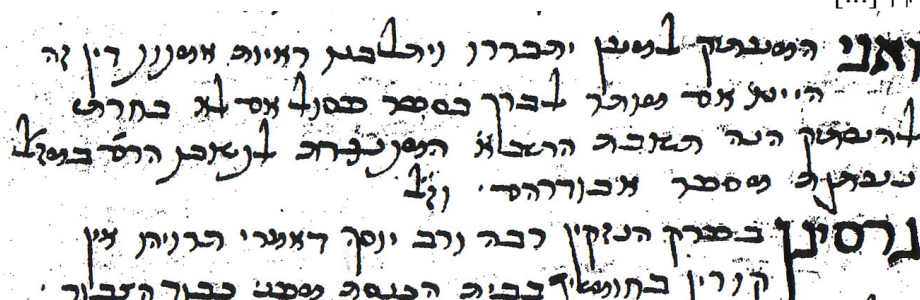 [...]
ואני המעתיק למען יתבררו ויתלבנו ראיות אמנון דין זה
היינו אם מותר לברך בספר פסול אם לא בחרתי
להעתיק הנה תשובת הרשב"א לנשוכת הרמ במז"ל
שנעתקה מספר אבודרהם. וז"ל
גרסינן בפרק הנזקין רבה ורב יוסף דאמרי תרויהו אין
קורין בחומשין בבית הכנסת מפני כבוד הצבור.